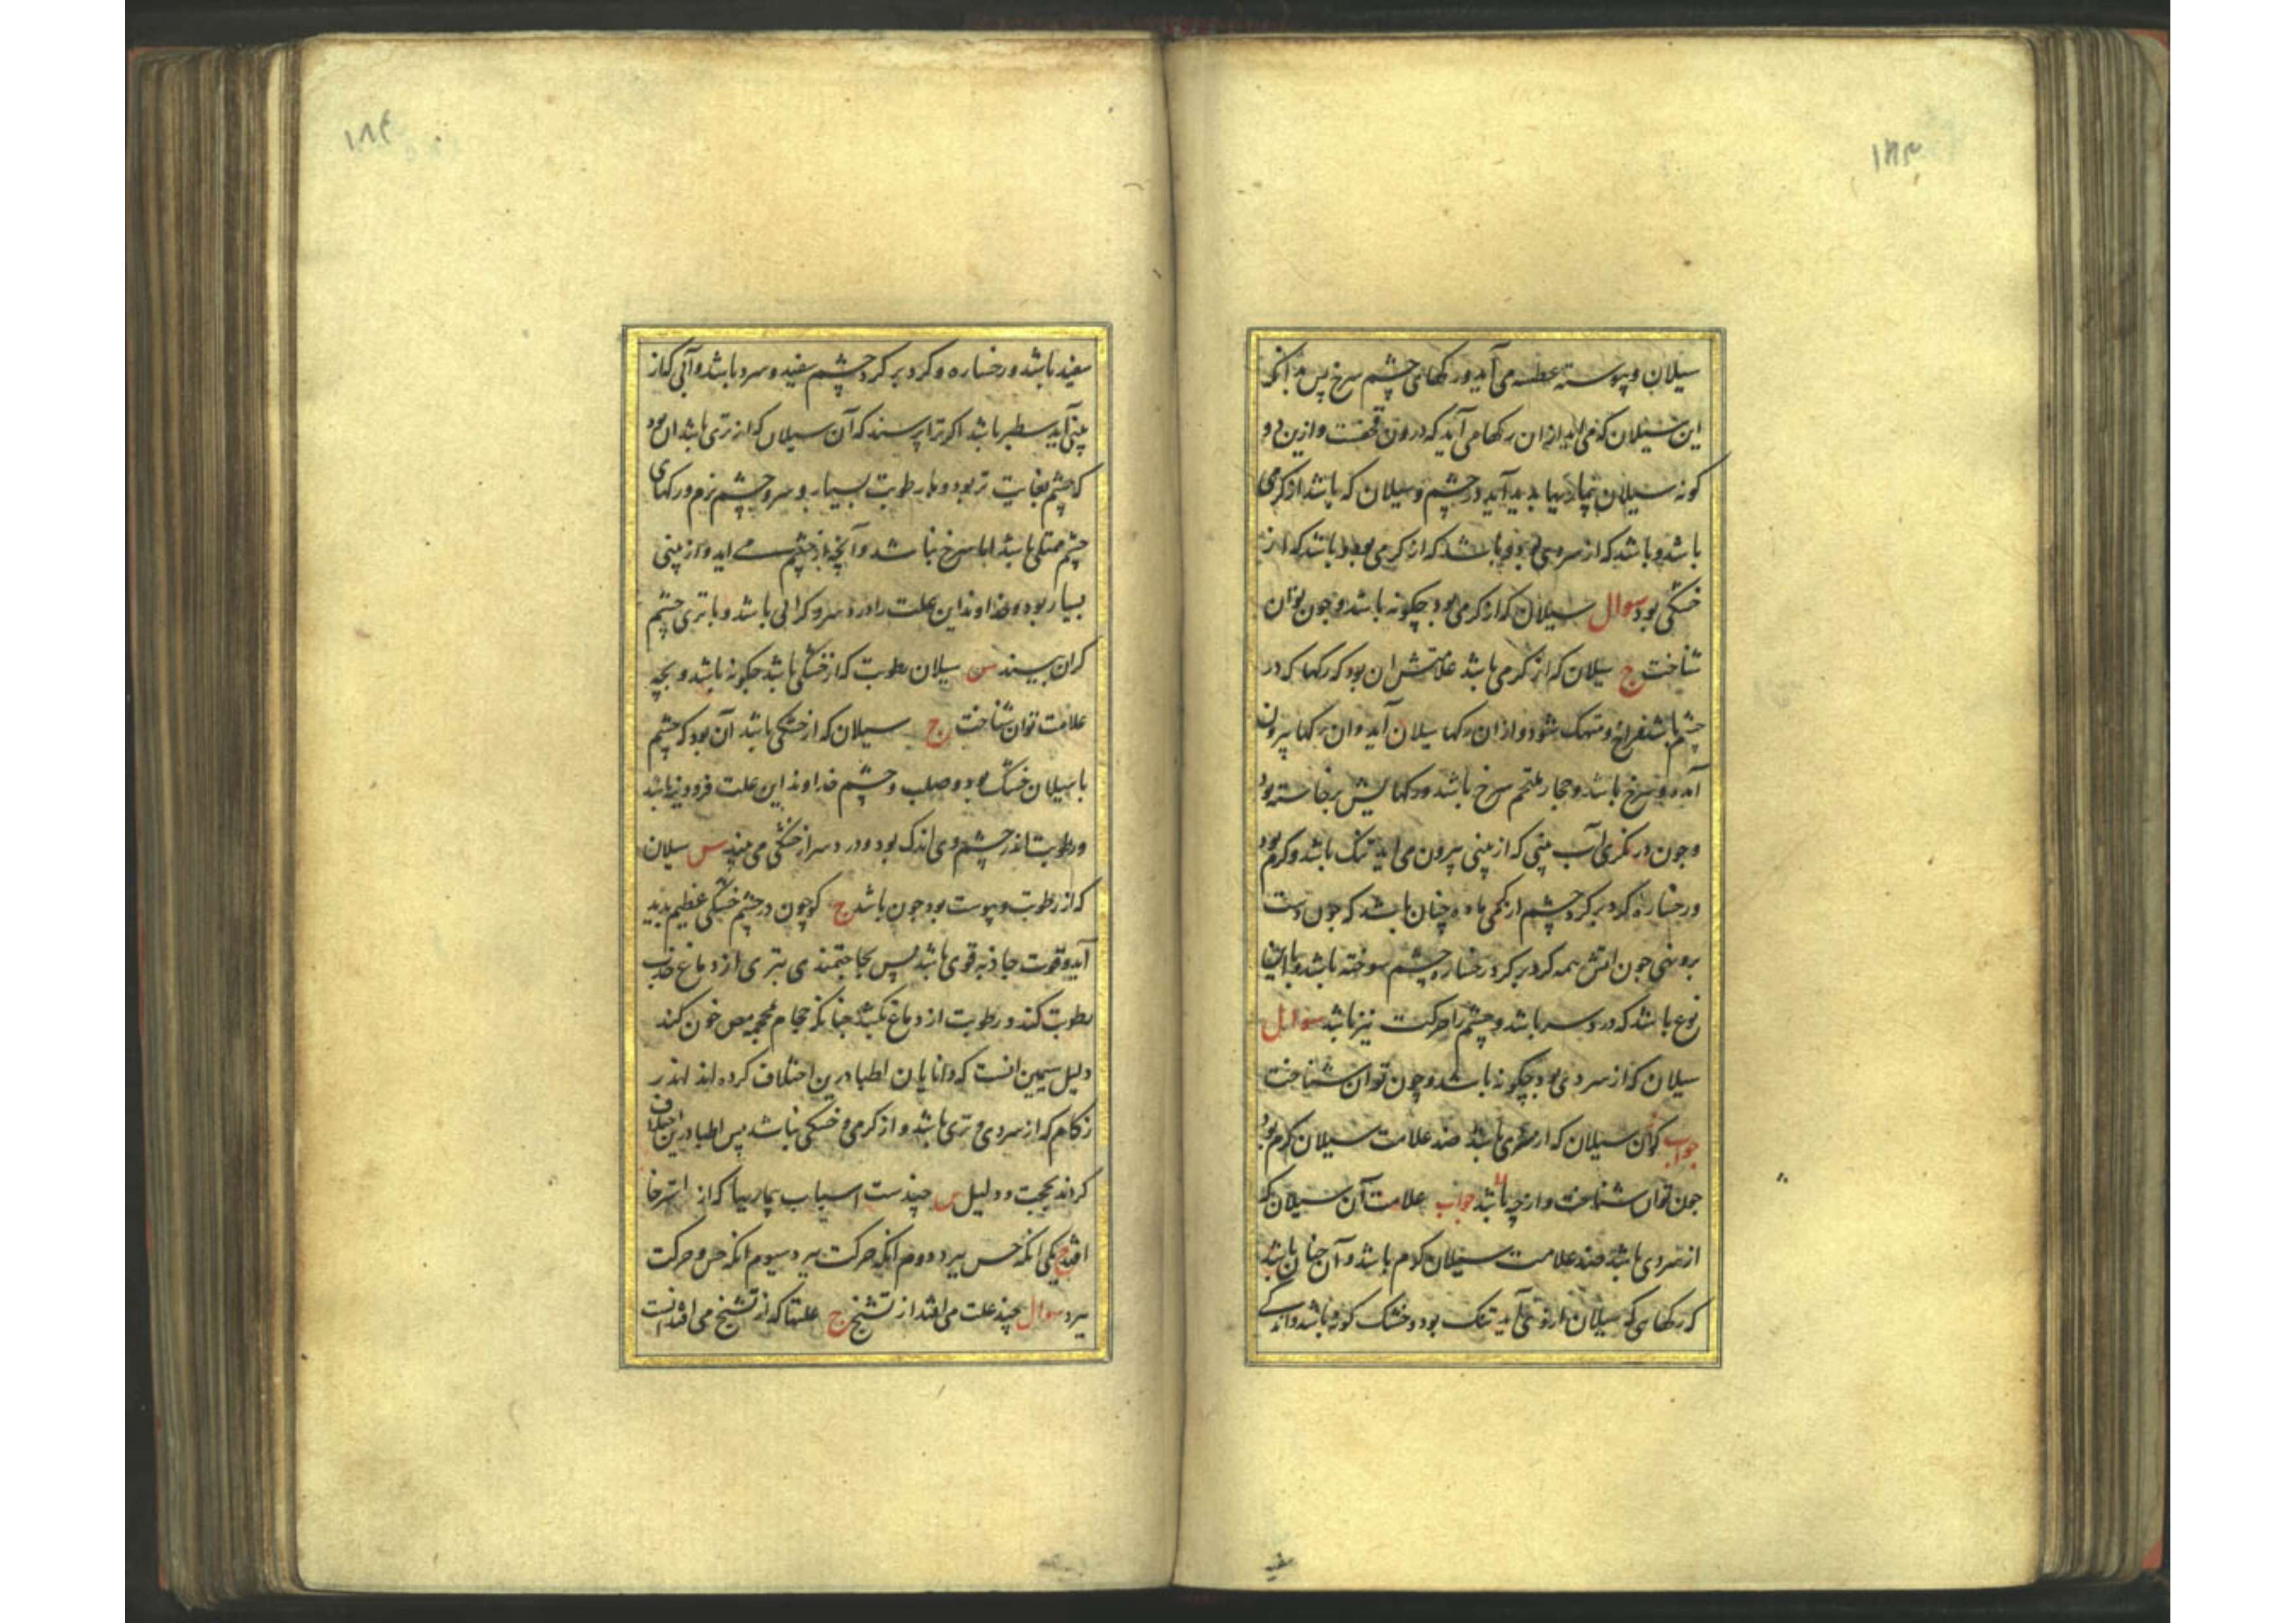 ۱۸۳
سیلان و پیوسته عطسه می آید و رکهای چشم سرخ پس بدانکه
این سیلان که می اید از ان رکها می آید که درون قحفست و ازین دو
کونه سیلان بیماریها بدید آید در چشم و سیلان که باشد از کرمی
باشد و باشد که از سردی بود و باشد که از تری بود و باشد که از
خشکی بود سوال سیلان که از کرمی بود چکونه باشد و چون توان
شناخت ج سیلان که از کرمی باشد علامتش ان بود که رکها که در
چشم باشد فراخ و متهک شود و از ان رکها سیلان آید و ان رکها بیرون
آمده و سرخ باشد و حجاب ملتحم سرخ باشد و رکهایش برخاسته بود
و چون در نکری آب بینی که از بینی بیرون می اید تنک باشد و کرم بود
و رخساره کرد بر کرد چشم از کمی ماده چنان باشد که چون دست
بر وی نهی چون اتش همه کرد بر کرد رخساره چشم سوخته باشد و با این
نوع باشد که درد سر باشد و چشم را حرکت تیز باشد سوال
سیلان که از سردی بود چکونه باشد و چون توان شناخت
جواب کوان سیلان که از سردی باشد ضد علامت سیلان کرم بود
چون توان شناخت و از چه باشد جواب علامت آن سیلان که
از سردی باشد ضد علامت سیلان کرم باشد و آن چنان باشد
که رکهایی که سیلان از وی می آید تنک بود و خشک کونه باشد و اندکی
سفید
۱۸۴
سفید باشد و رخساره و کرد بر کرد چشم سفید و سرد باشد و آبی که از
بینی آید سطبر باشد اکر ترا پرسند که آن سیلان که از تری باشد ان بود
که چشم بغایت تر بود و با رطوبت بسیار و سر و چشم نرم و رکهای
چشم ممتلی باشد اما سرخ نباشد و آنچه از چشم می اید و از بینی
بسیار بود و خداوند این علت را درد سر و کرانی باشد و با تری چشم
کران بیند س سیلان رطوبت که از خشکی باشد چکونه باشد و بچه
علامت توان شناخت ج سیلان که از خشکی باشد آن بود که چشم
با سیلان خشک بود و صلب و چشم خداوند این علت فرو دیزه باشد
و رطوبت اندر چشم وی اندک بود و درد سر از خشکی می بیند س سیلان
که از رطوبت و یبوست بود چون باشد ج کو چون در چشم خشکی عظیم بدید
آید و قوت جاذبه قوی باشد پس بحاجتمندی بتری از دماغ جذب
رطوبت کند و رطوبت از دماغ بکشد چنانکه حجام بمحجمه مص خون کند
دلیل سیمین انست که دانایان اطبا درین اختلاف کرده اند اندر
زکام که از سردی و تری باشد و از کرمی و خشکی نباشد پس اطبا درین اختلاف
کردند بحجت و دلیل س چندست اسباب بیماریها که از استرخا
افتد ج یکی انکه حس ببرد دوم انکه حرکت ببرد سیوم انکه حس و حرکت
ببرد سوال چند علت می افتد از تشنج ج علتها که از تشنج می افتد انست